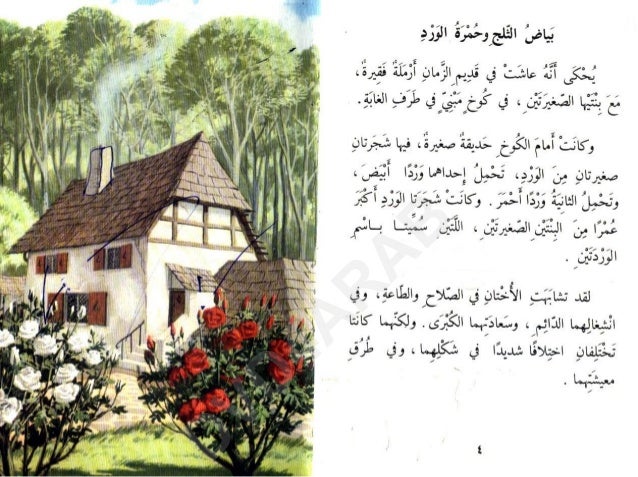 بَياضُ الثّلجِ وحُمْرَةُ الوَرْدِ
يُحْكَى أَنَّهُ عاشَتْ في قَديمِ الزَّمانِ أَرْمَلَةٌ فَقِيرةٌ،
مَعَ بِنْتَيْها الصّغيرَتَيْنِ، في كُوخٍ مَبْنِيٍّ في طَرَفِ الغابَةِ.
وكانَتْ أَمامَ الكُوخِ حَديقةٌ صغيرةٌ، فيها شَجَرتانِ
صغيرتانِ مِنَ الوَرْدِ، تَحْمِلُ إحداهما وَرْدًا أَبْيَضَ،
وتَحْمِلُ الثانِيَةُ وَرْدًا أَحْمَرَ. وكانَتْ شَجَرَتا الوَرْدِ أَكْبَرَ
عُمْرًا مِنَ البِنْتَيْنِ الصّغيرتَيْنِ، اللَّتَيْنِ سُمِّيتـا بـاسْمِ
الوَرْدَتَيْنِ.
لقد تشابَهَتِ الأُخْتانِ في الصّلاحِ والطّاعةِ، وفي
انْشِغالِهما الدّائِمِ، وسَعادَتِهما الكُبْرَى. ولكنّهما كانَتا
تَخْتَلِفانِ اختِلافًا شديدًا في شَكْلِهِما، وفي طُرُقِ
معيشَتِهما.
٤